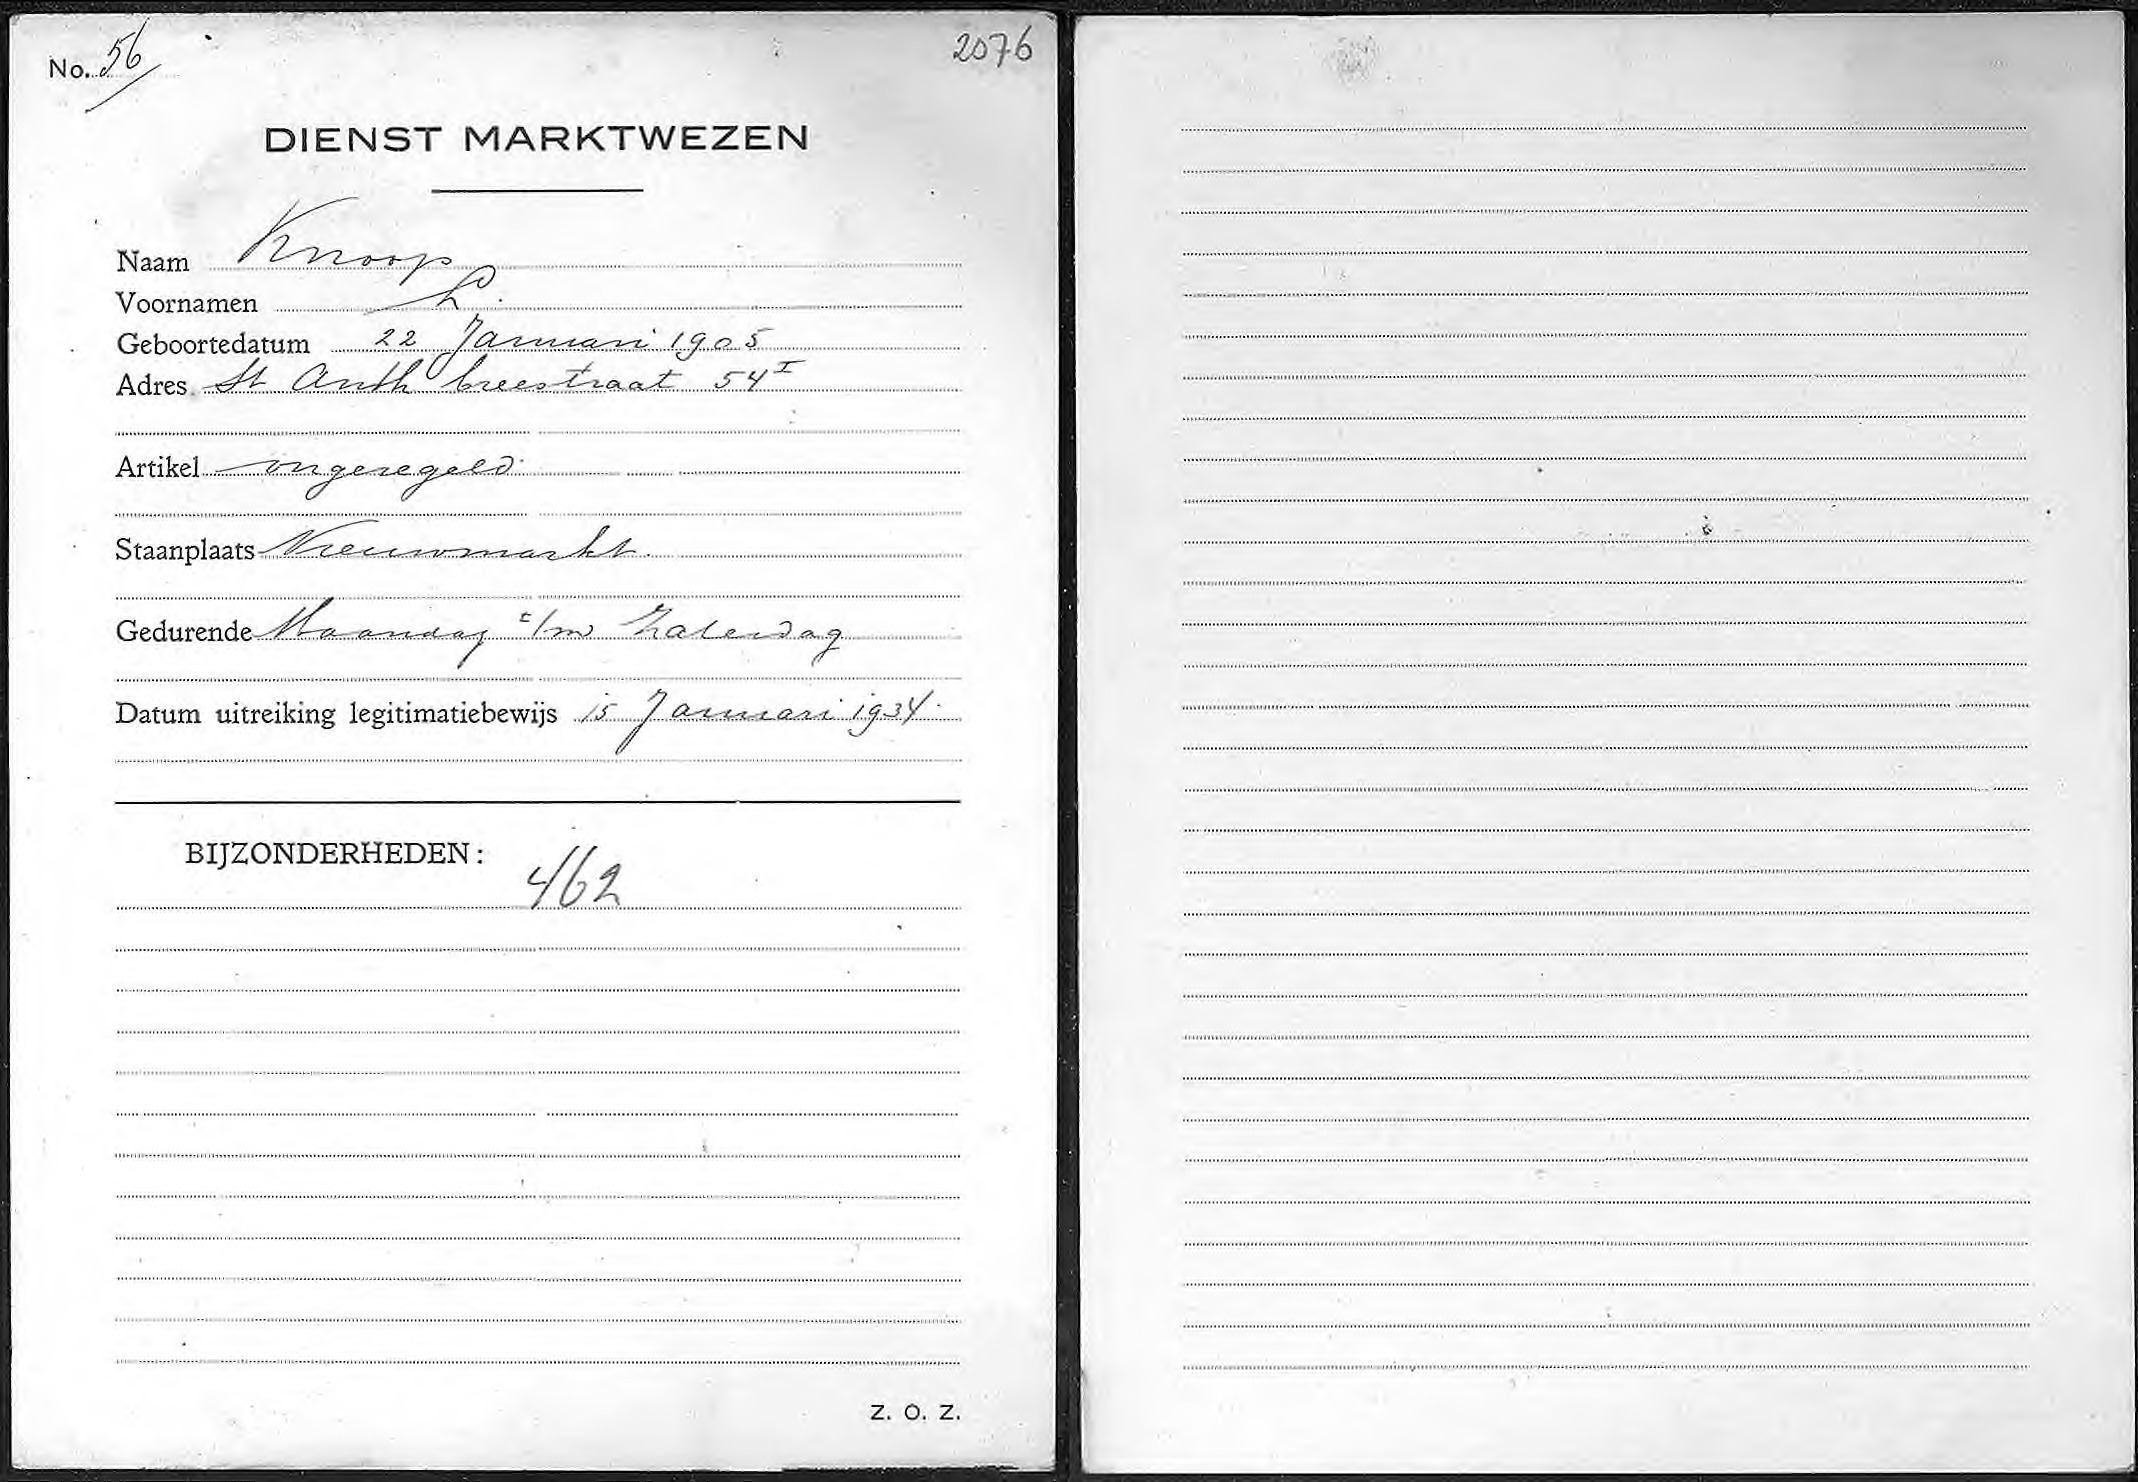 No. 56
2076
DIENST MARKTWEZEN
Naam Knoop
Voornamen L.
Geboortedatum 22 Januari 1905
Adres St Anth breestraat 54 I
Artikel ongeregeld
Staanplaats Nieuwmarkt.
Gedurende Maandag t/m Zaterdag
Datum uitreiking legitimatiebewijs 15 Januari 1934.
BIJZONDERHEDEN:
462
Z. O. Z.